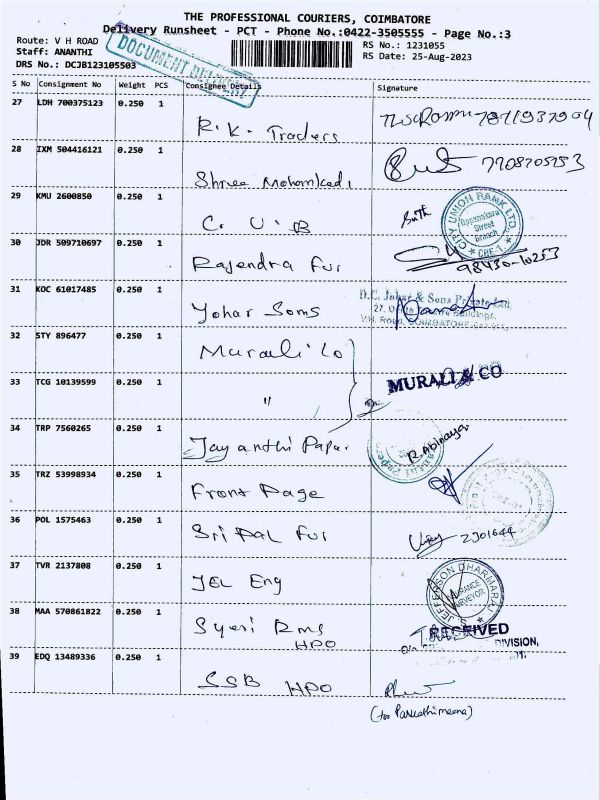 THE PROFESSIONAL COURIERS, COIMBATORE
Delivery Runsheet - PCT - Phone No.:0422-3505555 - Page No.:3
Route: V H ROAD
Staff: ANANTHI
DRS No.: DCJB123105503
DOCUMENT DELIVERY
RS No.: 1231055
RS Date: 25-Aug-2023
S No Consignment No Weight PCS Consignee Details Signature
27 LDH 700375123 0.250 1 R.K. Traders
28 IXM 504416121 0.250 1 Shree 7708705753
29 KMU 2600850 0.250 1 C. U. B
CITY UNION BANK LTD.
Street
Branch
CBE-1.
30 JDR 509710697 0.250 1 Rajendra Fur 98430-10253
31 KOC 61017485 0.250 1 Johar Soms
D.C. Johar & Sons
32 STY 896477 0.250 1 Murali Co
MURALI & CO
33 TCG 10139599 0.250 1 "
34 TRP 7560265 0.250 1 Jayanthi Papar R. Abinaya
35 TRZ 53998934 0.250 1 Front Page
36 POL 1575463 0.250 1 Sri Pal Fur
37 TVR 2137808 0.250 1 JEL Eng
S. JEFFERSON DHARMARAJ
SURVEYOR
38 MAA 570861822 0.250 1 Syeri Rms
HPO
RECEIVED
DIVISION,
39 EDQ 13489336 0.250 1 SSB HPO
(for Parvathimeena)